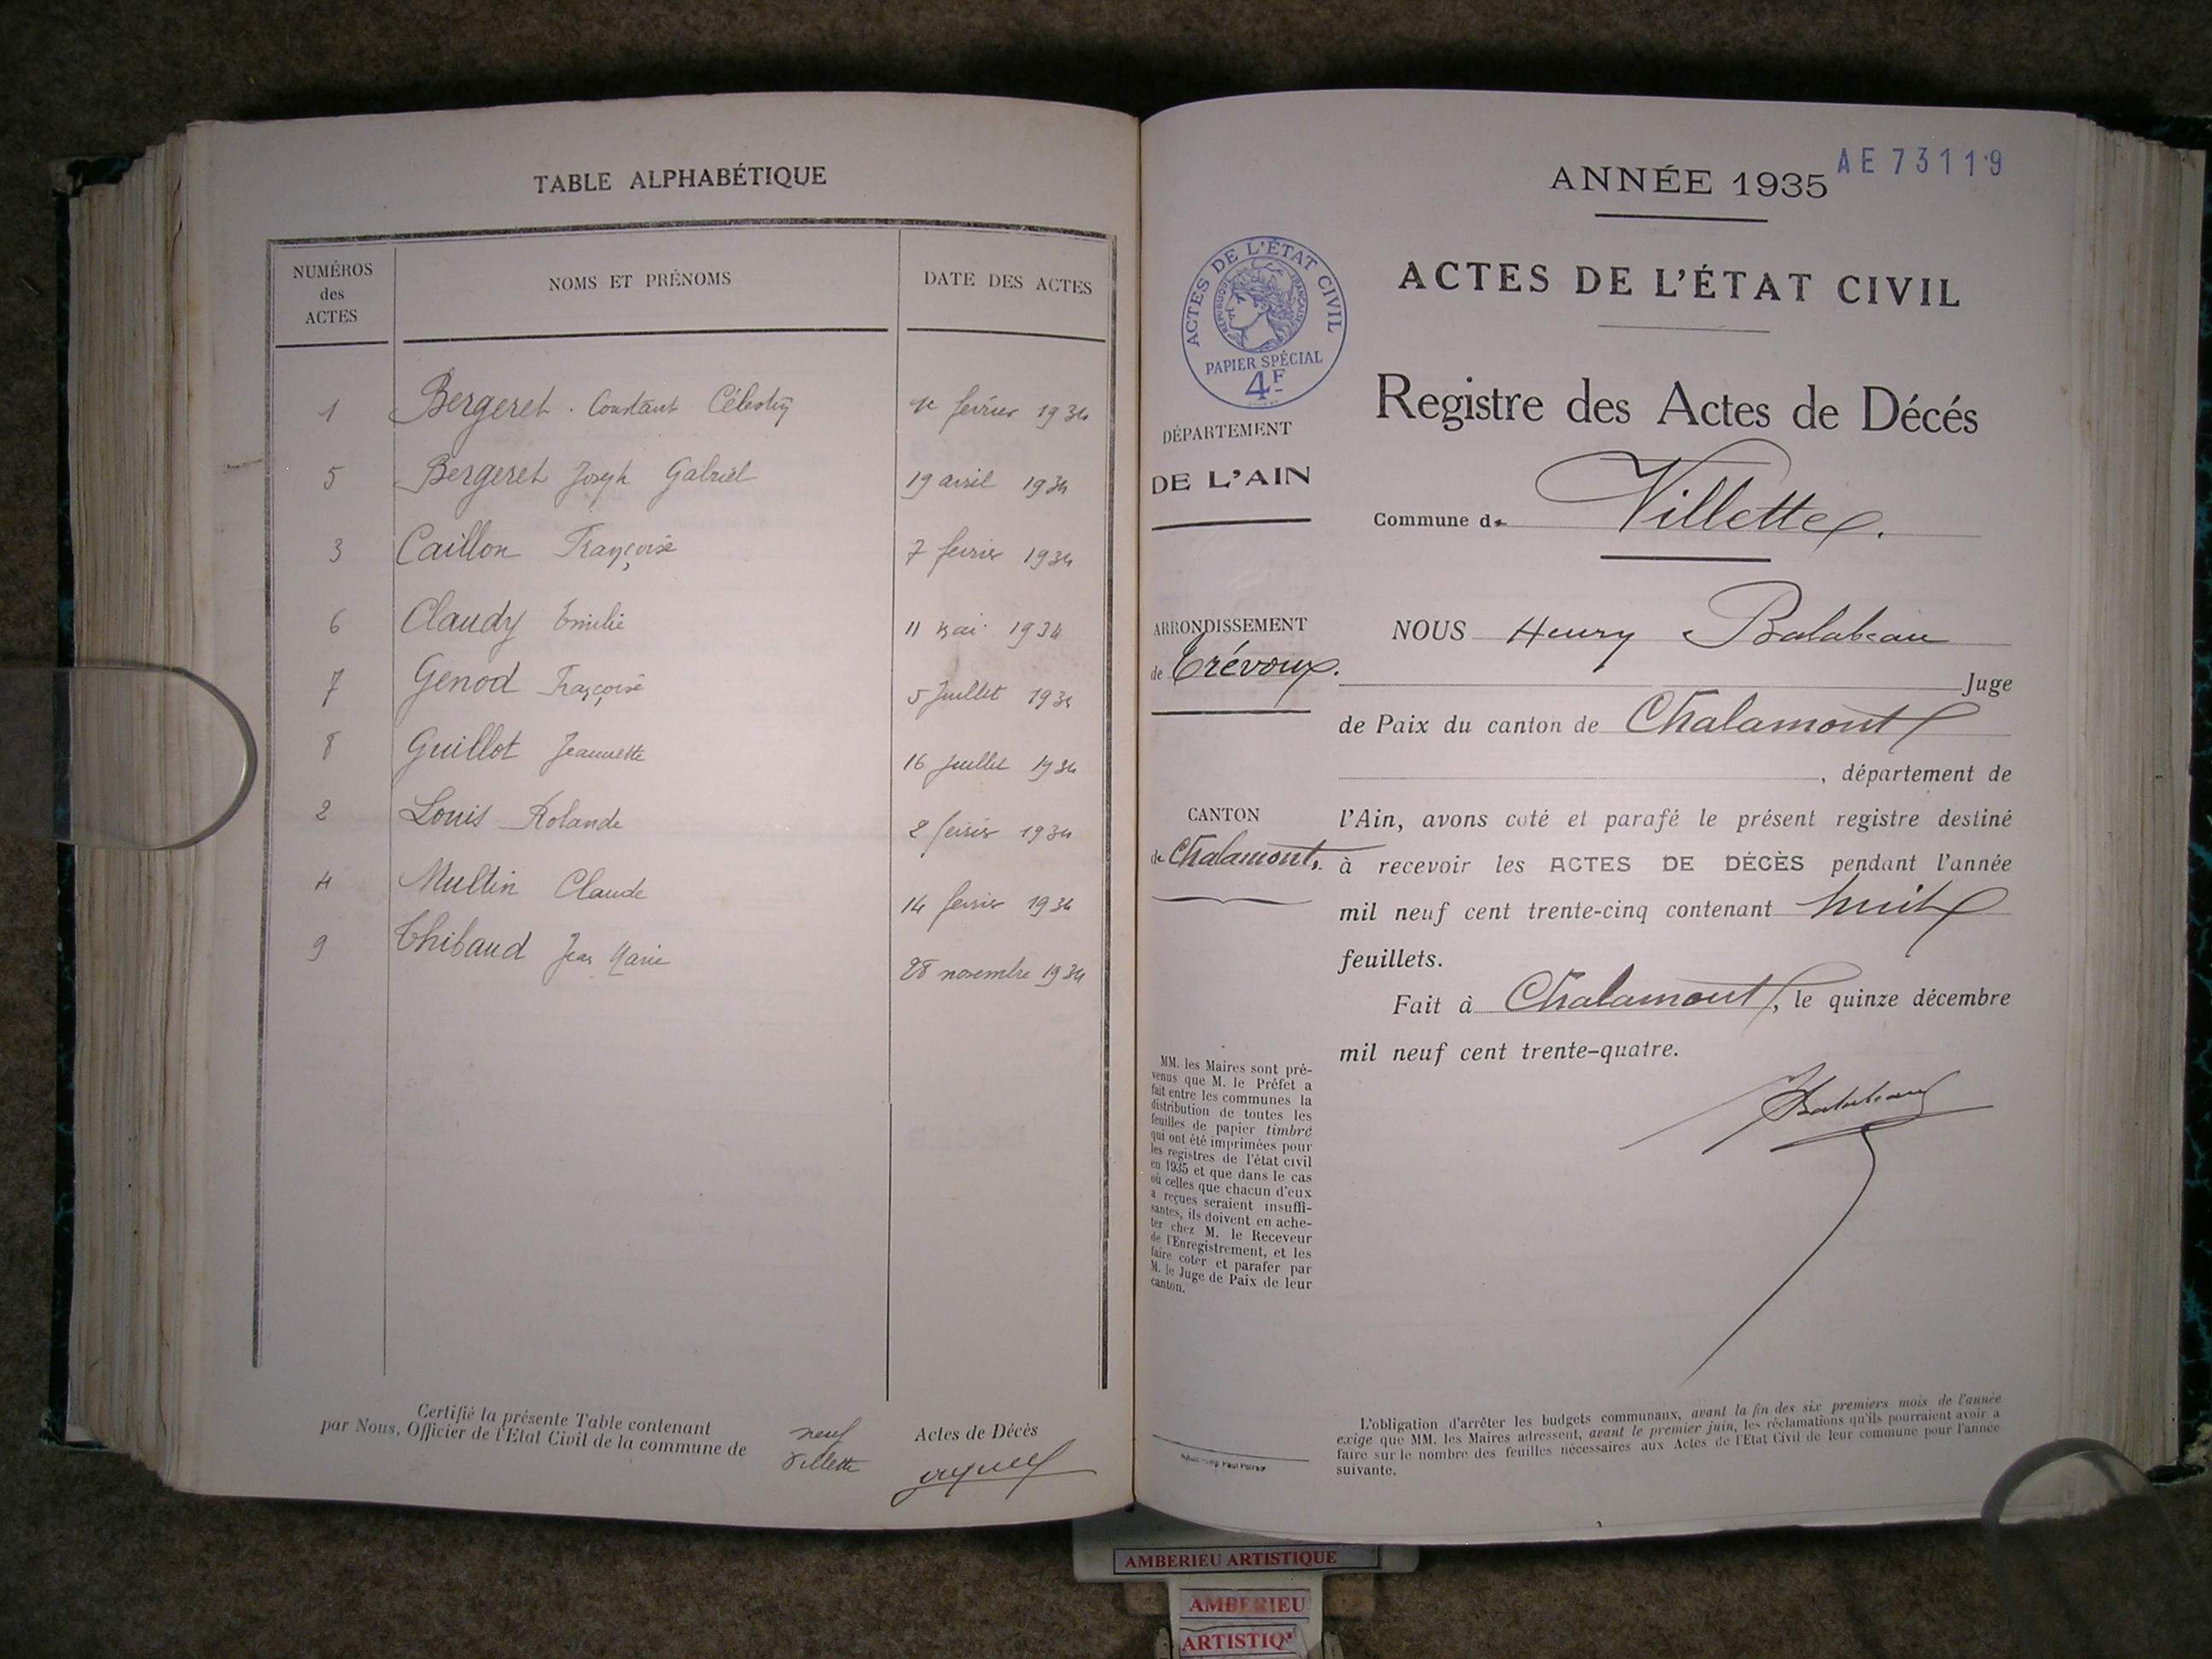 TABLE ALPHABÉTIQUE
NUMÉROS
des
ACTES
NOMS ET PRÉNOMS
DATE DES ACTES
1 Bergeret Constant Célestin 1er février 1934
5 Bergeret Joseph Gabriel 19 avril 1934
3 Caillon Françoise 7 février 1934
6 Claudy Emilie 11 mai 1934
7 Genod Françoise 5 Juillet 1934
8 Guillot Jeannette 16 Juillet 1934
2 Louis Rolande 2 février 1934
4 Multin Claude 14 février 1934
9 Thibaud Jean Marie 28 novembre 1934
Certifié la présente Table contenant neuf Actes de Décès
par Nous, Officier de l'Etat Civil de la commune de Villette
AE 73119
ANNÉE 1935
ACTES DE L'ÉTAT CIVIL
ACTES DE L'ÉTAT CIVIL
RÉPUBLIQUE FRANÇAISE
PAPIER SPÉCIAL
4F
Registre des Actes de Décés
DÉPARTEMENT
DE L'AIN
Commune de Villette.
ARRONDISSEMENT
de Trévoux.
CANTON
de Chalamont.
NOUS Henry Balabeau
Juge
de Paix du canton de Chalamont
, département de
l'Ain, avons coté et parafé le présent registre destiné
à recevoir les ACTES DE DÉCÈS pendant l'année
mil neuf cent trente-cinq contenant huit
feuillets.
Fait à Chalamont, le quinze décembre
mil neuf cent trente-quatre.
Balabeau
MM. les Maires sont pré-
venus que M. le Préfet a
fait entre les communes la
distribution de toutes les
feuilles de papier timbré
qui ont été imprimées pour
les registres de l'état civil
en 1935 et que dans le cas
où celles que chacun d'eux
a reçues seraient insuffi-
santes, ils doivent en ache-
ter chez M. le Receveur
de l'Enregistrement, et les
faire coter et parafer par
M. le Juge de Paix de leur
canton.
L'obligation d'arrêter les budgets communaux, avant la fin des six premiers mois de l'année
exige que MM. les Maires adressent, avant le premier juin, les réclamations qu'ils pourraient avoir a
faire sur le nombre des feuilles nécessaires aux Actes de l'Etat Civil de leur commune pour l'année
suivante.
AMBERIEU ARTISTIQUE
AMBERIEU
ARTISTIQ